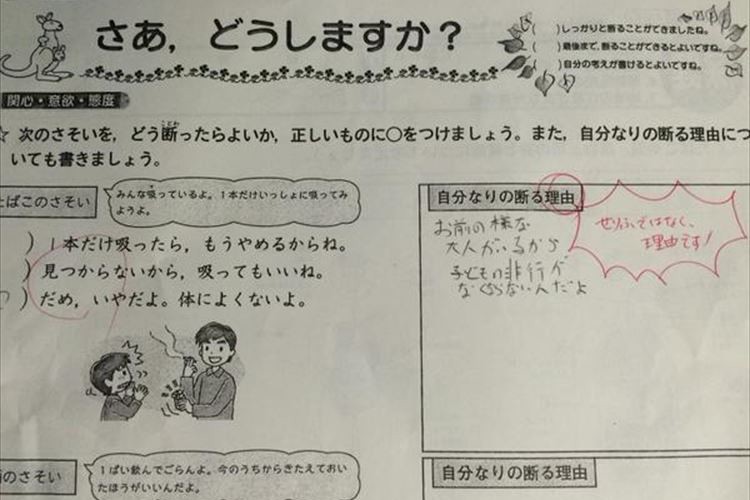 さあ，どうしますか？
(　　)しっかりと断ることができましたね。
(　　)最後まで，断ることができるとよいですね。
(　　)自分の考えが書けるとよいですね。
関心・意欲・態度
☆ 次のさそいを，どう断ったらよいか，正しいものに○をつけましょう。また，自分なりの断る理由につ
いても書きましょう。
たばこのさそい
みんな吸っているよ。１本だけいっしょに吸ってみ
ようよ。
）１本だけ吸ったら，もうやめるからね。
）見つからないから，吸ってもいいね。
）だめ，いやだよ。体によくないよ。
自分なりの断る理由
お前の様な
大人がいるから
子どもの非行が
なくならないんだよ
せりふではなく、
理由です！
のさそい
１ぱい飲んでごらんよ。今のうちからきたえておい
たほうがいいんだよ。
自分なりの断る理由